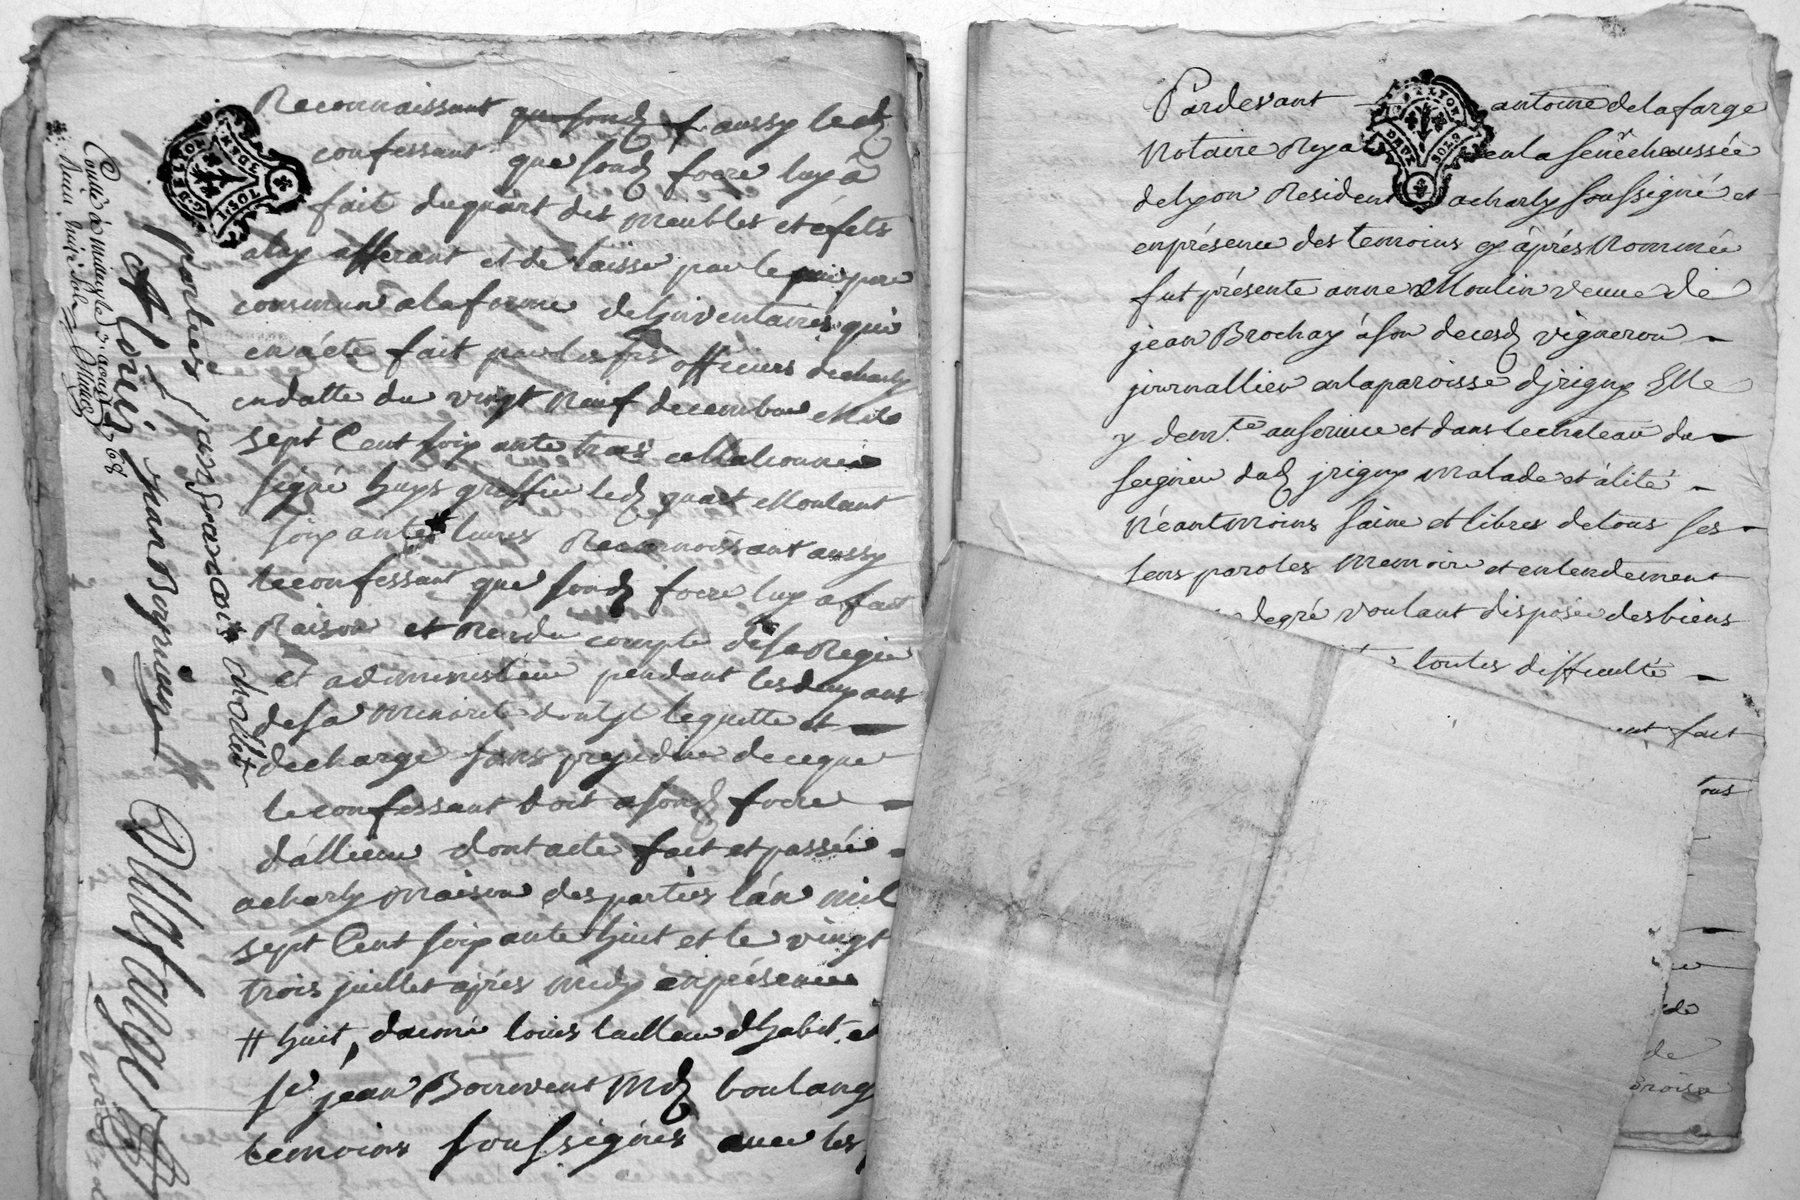 Reconnaissant que sond f. aussy led
confessant que sond frere luy à
fait du quart des meubles et éfets
a luy afferant et de laissé par le pere
commun a la forme de linventaires qui
en à été fait par les srs officiers de charly
en datte du vingt neuf decembre mil
sept Cent soixante trois collationné
signé huys greffier led quart montant
soixante # livres Reconnoissant aussy
le confessant que sond frere luy a fait
Raison et Rendu compte de sa Regie
et administrâon pendant les deux ans
de sa minorité dont il le quitte et
decharge sans prejudice de ce que
le confessant doit a sond frere
d'allieur dont acte fait et passée
a charly maison des parties l'án mil
sept Cent soixante huit et le vingt
trois juillet apres midy en présence
# huit, daimé louis tailleur dhabit et
sr jean Boirivent Md boulang
temoins soussignés avec les
parties jean françois chollet
A Loüis jean Boirivent
Delafarge
Conllé à millery le 2 aoust 1768
GEN DE LYON
Pardevant antoine delafarge
Notaire Roya en la senechaussée
de lyon Resident a charly soussigné et
en présence des temoins cy àprés nommée
fut présente anne Moulin veuve de
jean Brochay à son decesd vigneron
journallier en la paroisse djrigny Elle
y demte au service et dans le chateau du
seigneur dud jrigny malade et álité
Néantmoins saine et libres de tous ses
sens paroles memoire et entendement
de gré voulant disposée des biens
toutes difficulté
fait
tous
de
de
GEN DE LYON
DEUX SOLS